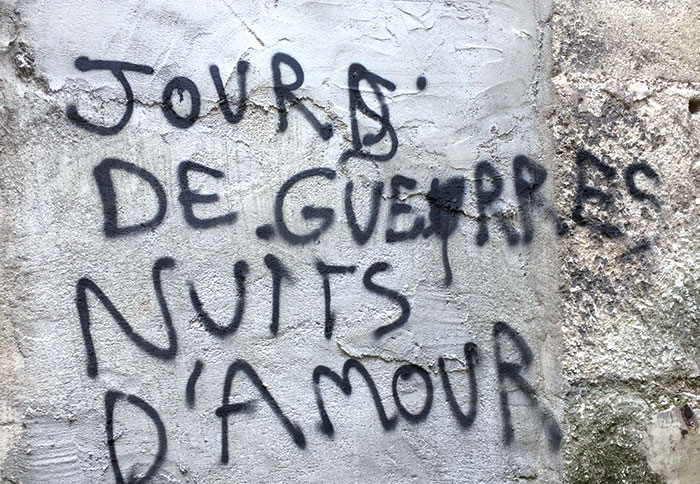 JOURS
DE GUERRES
NUITS
D'AMOUR